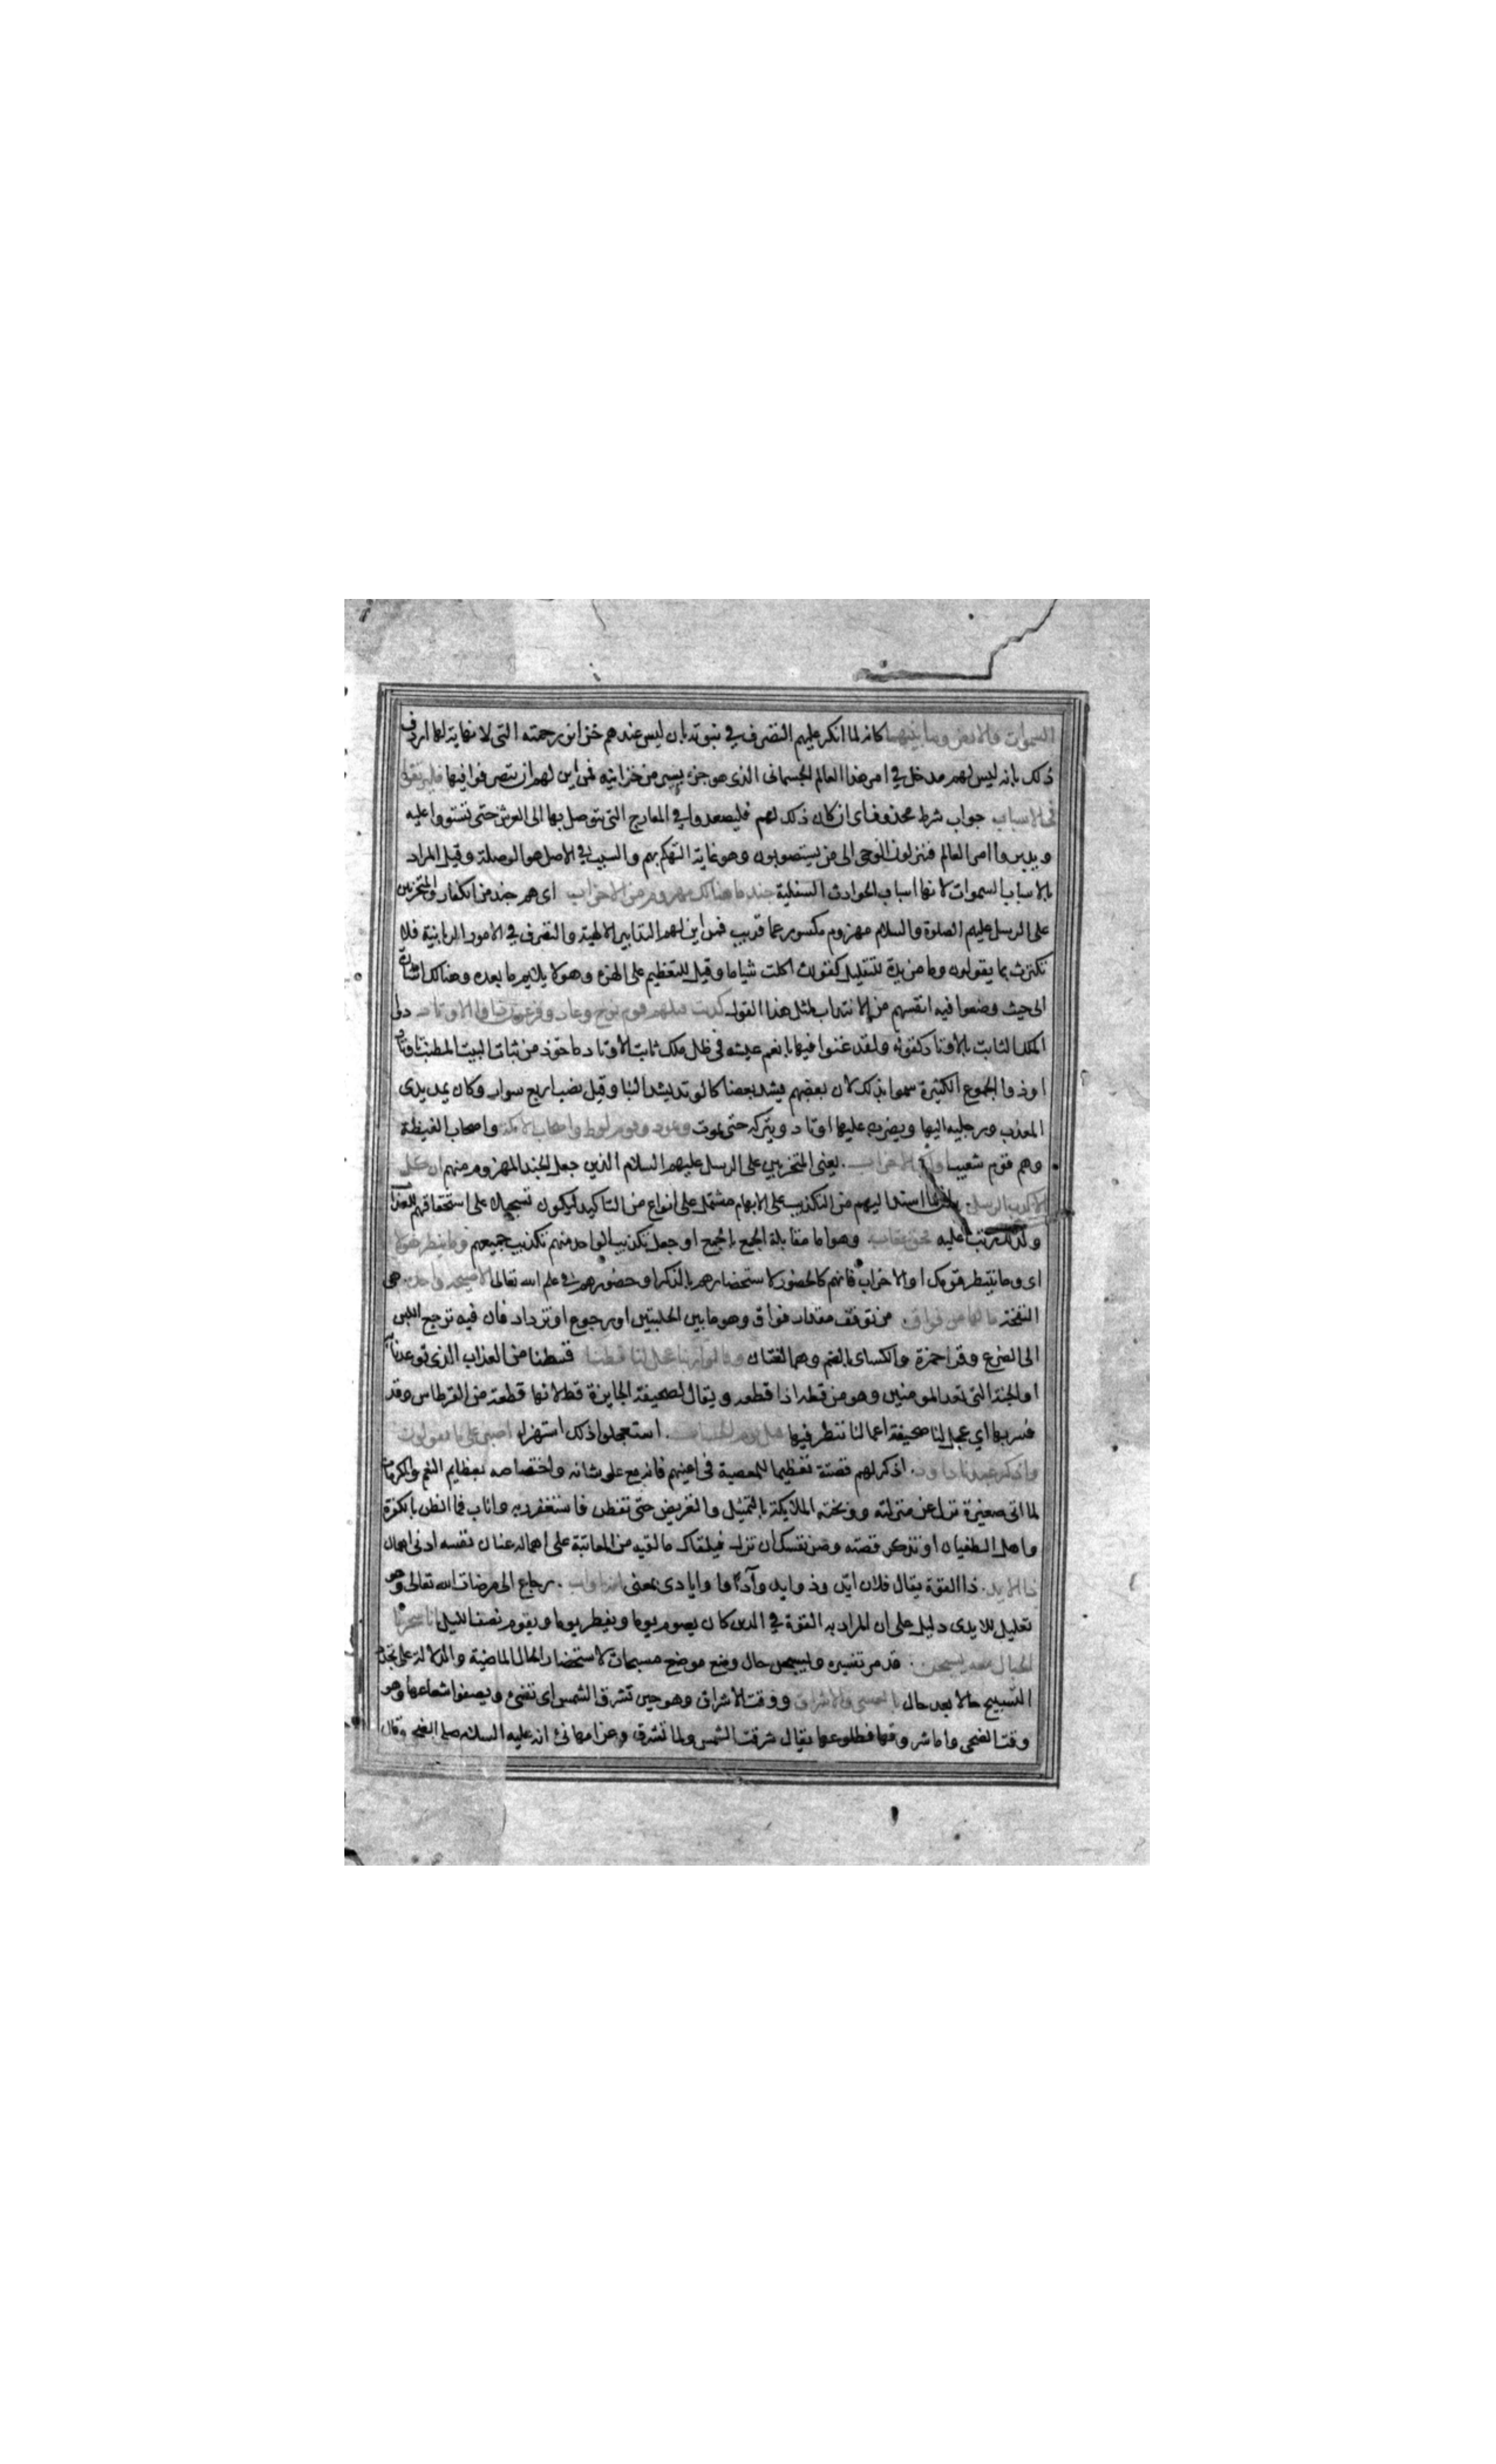 السموات والارض وما بينهما كانه لما انكر عليهم التصرف في نبوته بان ليس عندهم خزاين رحمته التى لا نهاية لها اردف
ذلك بانه ليس لهم مدخل في امر هذا العالم الجسمانى الذى هو جزء يسير من خزاينه فمن اين لهم ان يتصرفوا فيها فليرتقوا
فى الاسباب جواب شرط محذوف اى ان كان ذلك لهم فليصعدوا في المعارج التى يتوصل بها الى العرش حتى يستووا عليه
ويدبروا امر العالم فينزلون الوحى الى من يستصوبون وهو غاية التهكم بهم والسبب في الاصل هو الوصلة وقيل المراد
بالاسباب السموات لانها اسباب الحوادث السفلية جند ما هنالك مهزوم من الاحزاب اى هم جند من الكفار المتحزبين
على الرسل عليهم الصلوة والسلام مهزوم مكسور عما قريب فمن اين لهم التدابير الالهية والتصرف في الامور الربانية فلا
تكترث بما يقولون وما مزيدة للتقليل كقولك اكلت شياما وقيل للتعظيم على الهزء وهو لا يلايم ما بعده وهنالك اشارة
الى حيث وضعوا فيه انفسهم من الانتداب لمثل هذا القول كذبت قبلهم قوم نوح وعاد وفرعون ذوا الاوتاد ذو
الملك الثابت بالأوتاد كقوله ولقد غنوا فيها بانعم عيشه فى ظل ملك ثابت الأوتاد ماخوذ من ثبات البيت المطنب باوتاده
او ذوا الجموع الكثيرة سموا بذلك لان بعضهم يشد بعضا كالوتد يشد البنا وقيل نصب اربع سوار وكان يمد يدى
المعذب ورجليه اليها ويضرب عليها اوتاد ويتركه حتى يموت وثمود وقوم لوط واصحاب الايكة واصحاب الغيظة
وهم قوم شعيب اولئك الاحزاب يعنى المتحزبين على الرسل عليهم السلام الذين جعل الجند المهزوم منهم ان كل
الا كذب الرسل بيان لما اسند اليهم من التكذيب على الابهام مشتمل على انواع من التاكيد ليكون تسجيلا على استحقاقهم للعذاب
ولذلك رتب عليه فحق عقاب وهو اما مقابلة الجمع بالجمع او جعل تكذيب الواحد منهم تكذيب جميعهم وما ينظر هؤلا
اى وما ينتظر قومك او الاحزاب فانهم كالحضور لاستحضارهم بالذكر او حضورهم في علم الله تعالى الا صيحة واحدة هى
النفخة ما لها من فواق من توقف مقدار فواق وهو ما بين الحلبتين او رجوع او ترداد فان فيه ترجع اللبن
الى الضرع وقرا حمزة والكساى بالضم وهما لغتان وقالوا ربنا عجل لنا قطنا قسطنا من العذاب الذى توعدنا به
او الجنة التى تعد المومنين وهو من قطه اذا قطعه ويقال لصحيفة الجايزة قط لانها قطعة من القرطاس وقد
فسر بها اي عجل لنا صحيفة اعمالنا ننظر فيها قبل يوم الحساب استعجلوا ذلك استهزاء اصبر على ما يقولون
واذكر عبدنا داود اذكر لهم قصته تعظيما للمعصية فى اعينهم فانه مع علو شانه واختصاصه بعظايم النعم والكرمات
لما اتى صغيرة نزل عن منزلته ووبخته الملايكة بالتمثيل والتعريض حتى تفطن فاستغفر ربه واناب فما الظن بالكفرة
واهل الطغيان او تذكر قصته وصن نفسك ان تزل فيلقاك ما لقيه من المعاتبة على اهماله عنان نفسه ادنى اهمال
ذا الايد ذا القوة يقال فلان ايد وذو ايد وآد وايادى بمعنى انه اواب رجاع الى مرضات الله تعالى وهو
تعليل للايدى دليل على ان المراد به القوة في الدين كان يصوم يوما ويفطر يوما ويقوم نصف الليل انا سخرنا
الجبال معه يسبحن قد مر تفسيره ويسبحن حال وضع موضع مسبحات لاستحضار الحال الماضية والدلالة على تجدد
التسبيح حالا بعد حال بالعشى والاشراق ووقت الاشراق وهو حين تشرق الشمس اى تضئ ويصفوا شعاعها وهو
وقت الضحى واما شروقها فطلوعها يقال شرقت الشمس ولما تشرق وعن ام هانئ انه عليه السلام صلى الضحى وقال